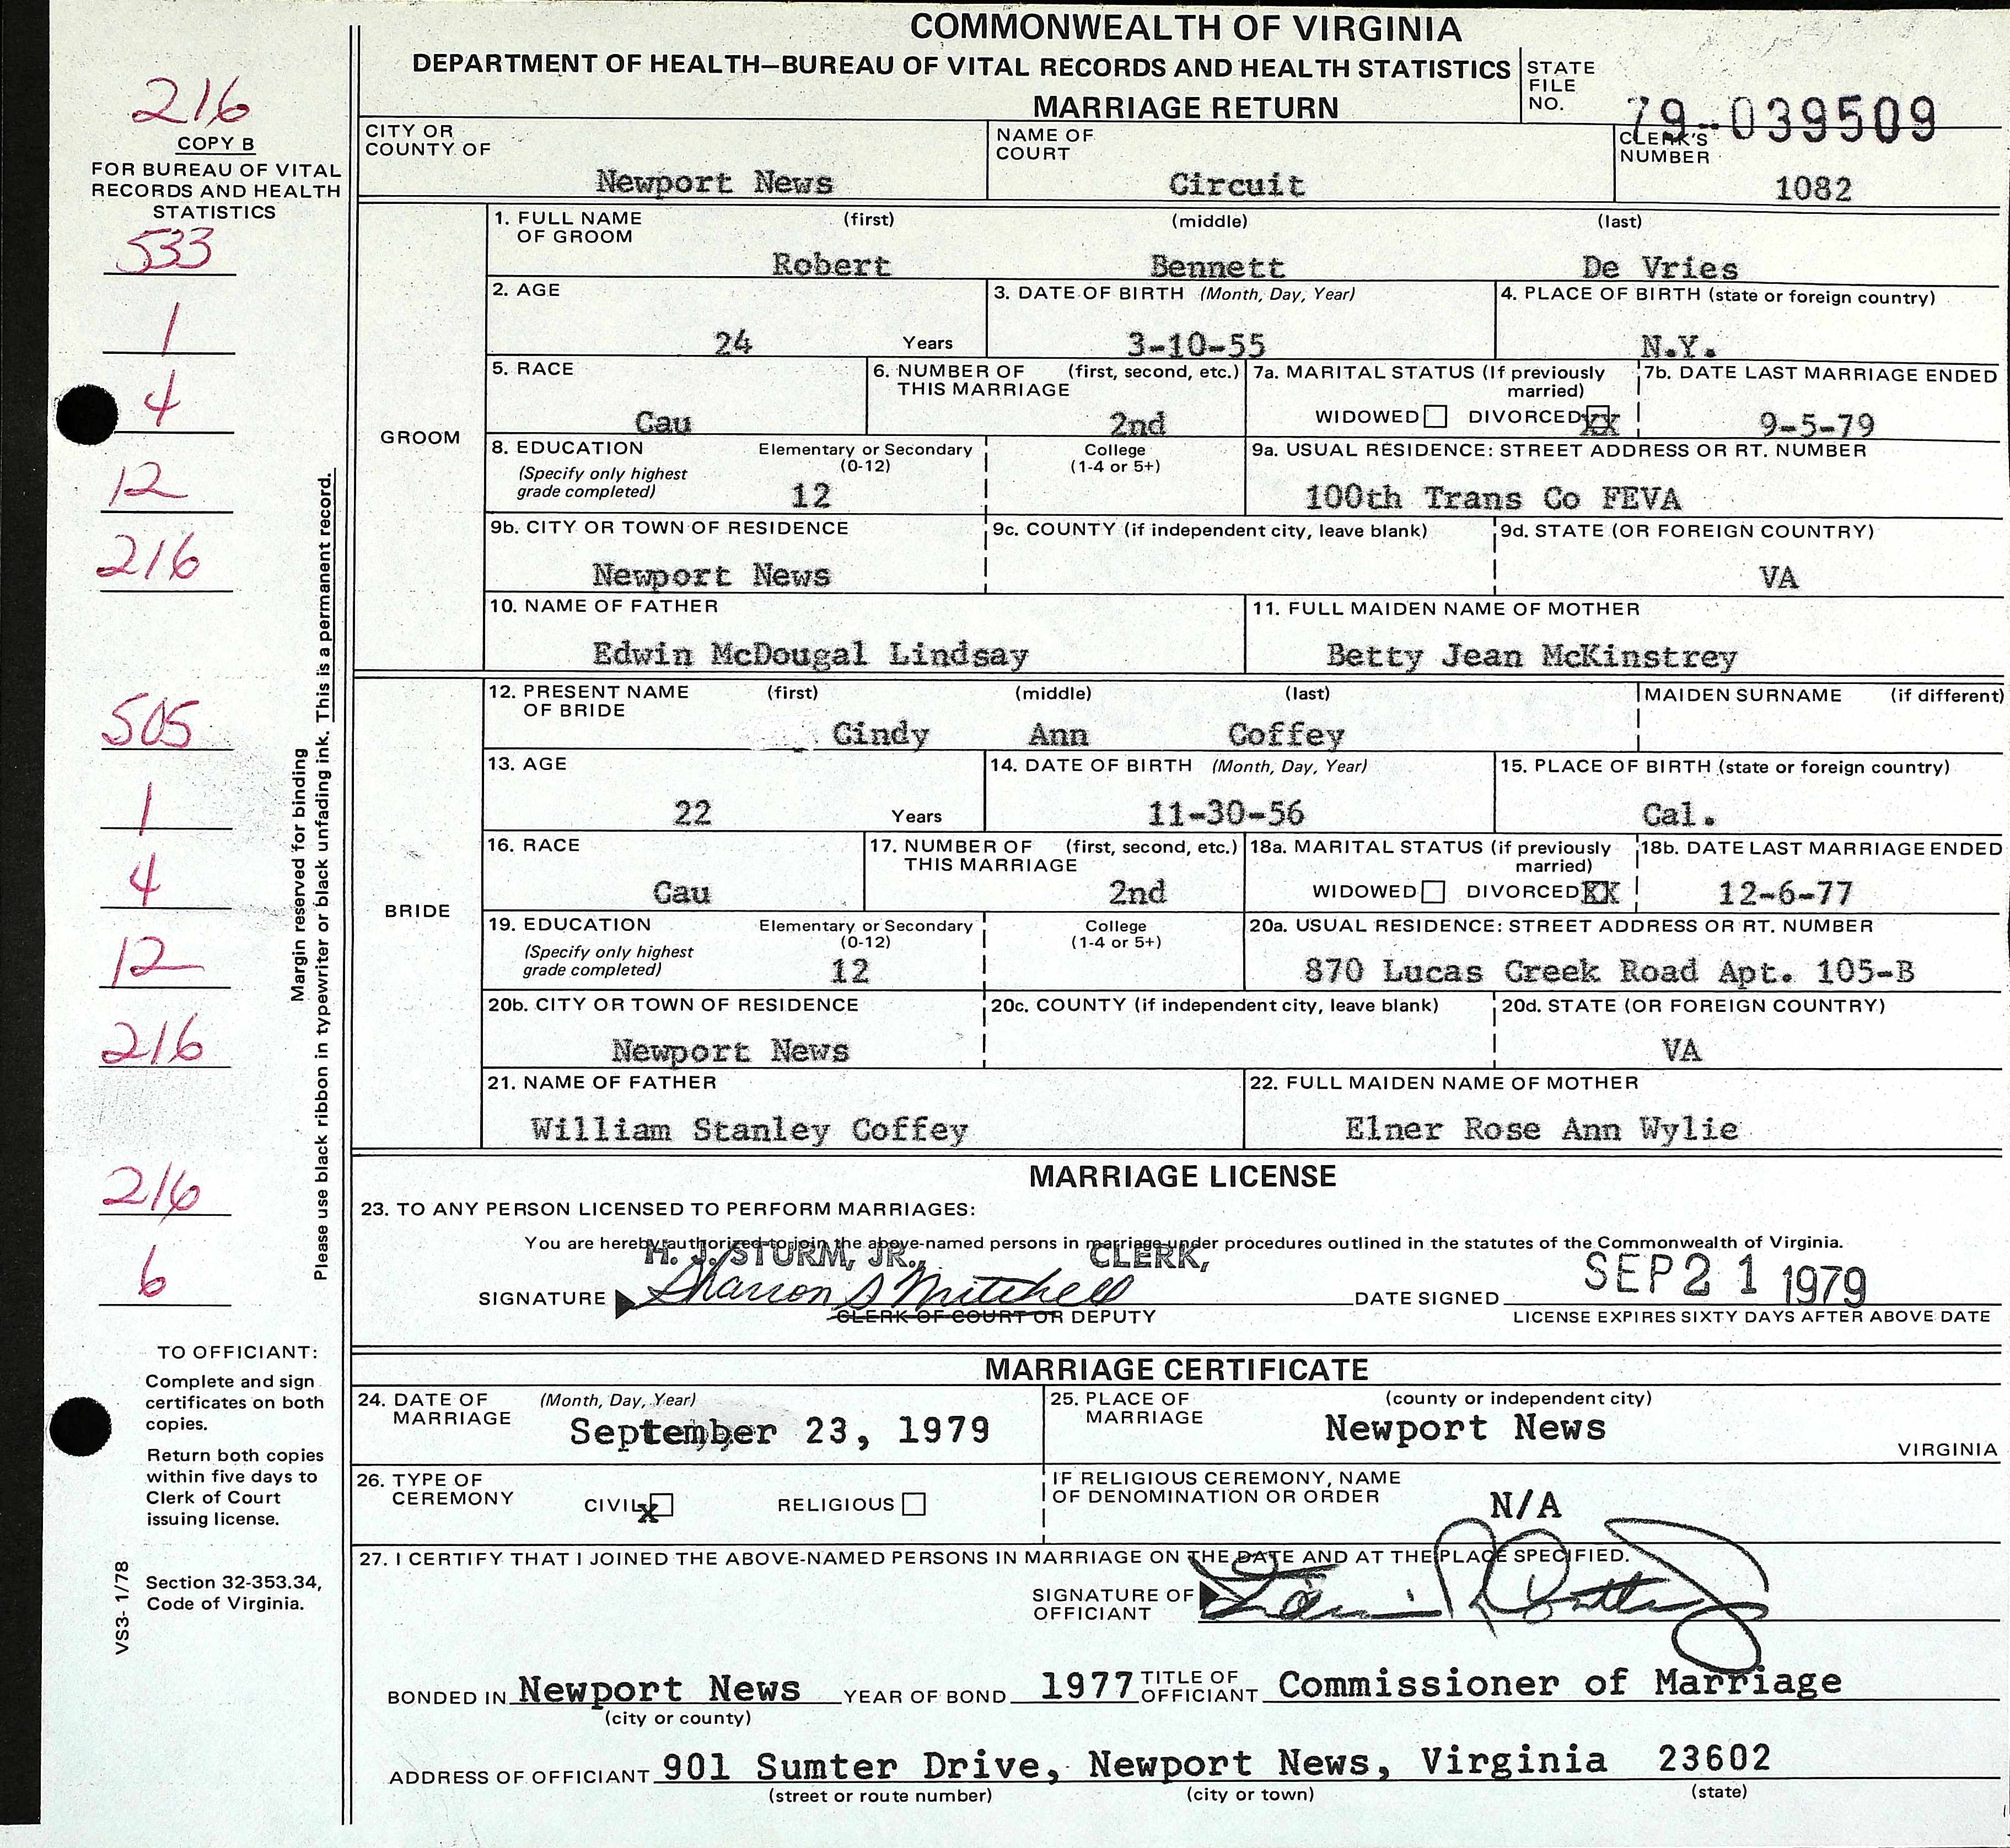 COMMONWEALTH OF VIRGINIA
DEPARTMENT OF HEALTH—BUREAU OF VITAL RECORDS AND HEALTH STATISTICS
MARRIAGE RETURN
STATE FILE NO. 79-039509
216
COPY B
FOR BUREAU OF VITAL
RECORDS AND HEALTH
STATISTICS
533
1
4
12
216
505
1
4
12
216
216
6
Margin reserved for binding
Please use black ribbon in typewriter or black unfading ink. This is a permanent record.
TO OFFICIANT:
Complete and sign
certificates on both
copies.
Return both copies
within five days to
Clerk of Court
issuing license.
Section 32-353.34,
Code of Virginia.
VS3- 1/78
CITY OR COUNTY OF Newport News
NAME OF COURT Circuit
CLERK'S NUMBER 1082
GROOM
1. FULL NAME OF GROOM (first) (middle) (last)
Robert Bennett De Vries
2. AGE 24 Years
3. DATE OF BIRTH (Month, Day, Year) 3-10-55
4. PLACE OF BIRTH (state or foreign country) N.Y.
5. RACE Cau
6. NUMBER OF THIS MARRIAGE (first, second, etc.) 2nd
7a. MARITAL STATUS (If previously married) WIDOWED DIVORCED XX
7b. DATE LAST MARRIAGE ENDED 9-5-79
8. EDUCATION (Specify only highest grade completed) Elementary or Secondary (0-12) 12 College (1-4 or 5+)
9a. USUAL RESIDENCE: STREET ADDRESS OR RT. NUMBER 100th Trans Co FEVA
9b. CITY OR TOWN OF RESIDENCE Newport News
9c. COUNTY (if independent city, leave blank)
9d. STATE (OR FOREIGN COUNTRY) VA
10. NAME OF FATHER Edwin McDougal Lindsay
11. FULL MAIDEN NAME OF MOTHER Betty Jean McKinstrey
BRIDE
12. PRESENT NAME OF BRIDE (first) (middle) (last) MAIDEN SURNAME (if different)
Cindy Ann Coffey
13. AGE 22 Years
14. DATE OF BIRTH (Month, Day, Year) 11-30-56
15. PLACE OF BIRTH (state or foreign country) Cal.
16. RACE Cau
17. NUMBER OF THIS MARRIAGE (first, second, etc.) 2nd
18a. MARITAL STATUS (if previously married) WIDOWED DIVORCED XX
18b. DATE LAST MARRIAGE ENDED 12-6-77
19. EDUCATION (Specify only highest grade completed) Elementary or Secondary (0-12) 12 College (1-4 or 5+)
20a. USUAL RESIDENCE: STREET ADDRESS OR RT. NUMBER 870 Lucas Creek Road Apt. 105-B
20b. CITY OR TOWN OF RESIDENCE Newport News
20c. COUNTY (if independent city, leave blank)
20d. STATE (OR FOREIGN COUNTRY) VA
21. NAME OF FATHER William Stanley Coffey
22. FULL MAIDEN NAME OF MOTHER Elner Rose Ann Wylie
MARRIAGE LICENSE
23. TO ANY PERSON LICENSED TO PERFORM MARRIAGES:
You are hereby authorized to join the above-named persons in marriage under procedures outlined in the statutes of the Commonwealth of Virginia.
H. J. STURM, JR., CLERK,
SIGNATURE Sharron S Mitchell DATE SIGNED SEP 21 1979
CLERK OF COURT OR DEPUTY LICENSE EXPIRES SIXTY DAYS AFTER ABOVE DATE
MARRIAGE CERTIFICATE
24. DATE OF MARRIAGE (Month, Day, Year) September 23, 1979
25. PLACE OF MARRIAGE (county or independent city) Newport News VIRGINIA
26. TYPE OF CEREMONY CIVIL x RELIGIOUS
IF RELIGIOUS CEREMONY, NAME OF DENOMINATION OR ORDER N/A
27. I CERTIFY THAT I JOINED THE ABOVE-NAMED PERSONS IN MARRIAGE ON THE DATE AND AT THE PLACE SPECIFIED.
SIGNATURE OF OFFICIANT
BONDED IN Newport News YEAR OF BOND 1977 TITLE OF OFFICIANT Commissioner of Marriage
(city or county)
ADDRESS OF OFFICIANT 901 Sumter Drive, Newport News, Virginia 23602
(street or route number) (city or town) (state)